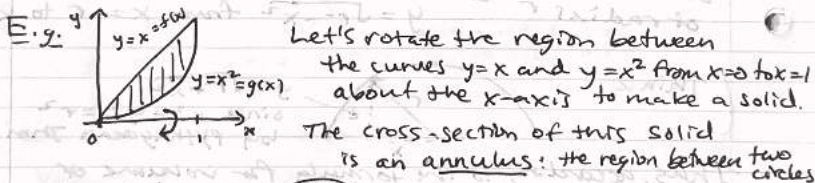 E.g. y y=x=f(x)
y=x²=g(x)
0 1 x
Let's rotate the region between
the curves y=x and y=x² from x=0 to x=1
about the x-axis to make a solid.
The cross-section of this solid
is an annulus: the region between two
circles